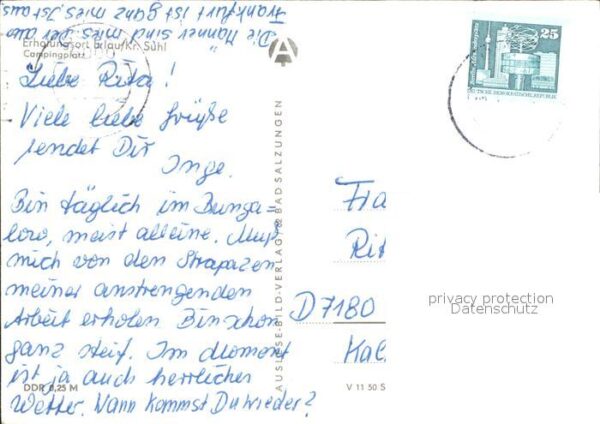 Erholungsort Erlau/Kr. Suhl
Campingplatz
Liebe Rita!
Viele liebe Grüße
sendet Dir
Inge.
Bin täglich im Bunga=
low, meist alleine. Muß
mich von den Strapazen
meiner anstrengenden
Arbeit erholen. Bin schon
ganz steif. Im Moment
ist ja auch herrliches
Wetter. Wann kommst Du wieder?
Die Männer sind mies. der aus
Frankfurt ist ganz mies. Ist aus
DDR 0,25 M
AUSLESE-BILD-VERLAG BAD SALZUNGEN
V 11 50 S
25
DEUTSCHE DEMOKRATISCHE REPUBLIK
Fra
Rit
D 7180
Kal
privacy protection
Datenschutz